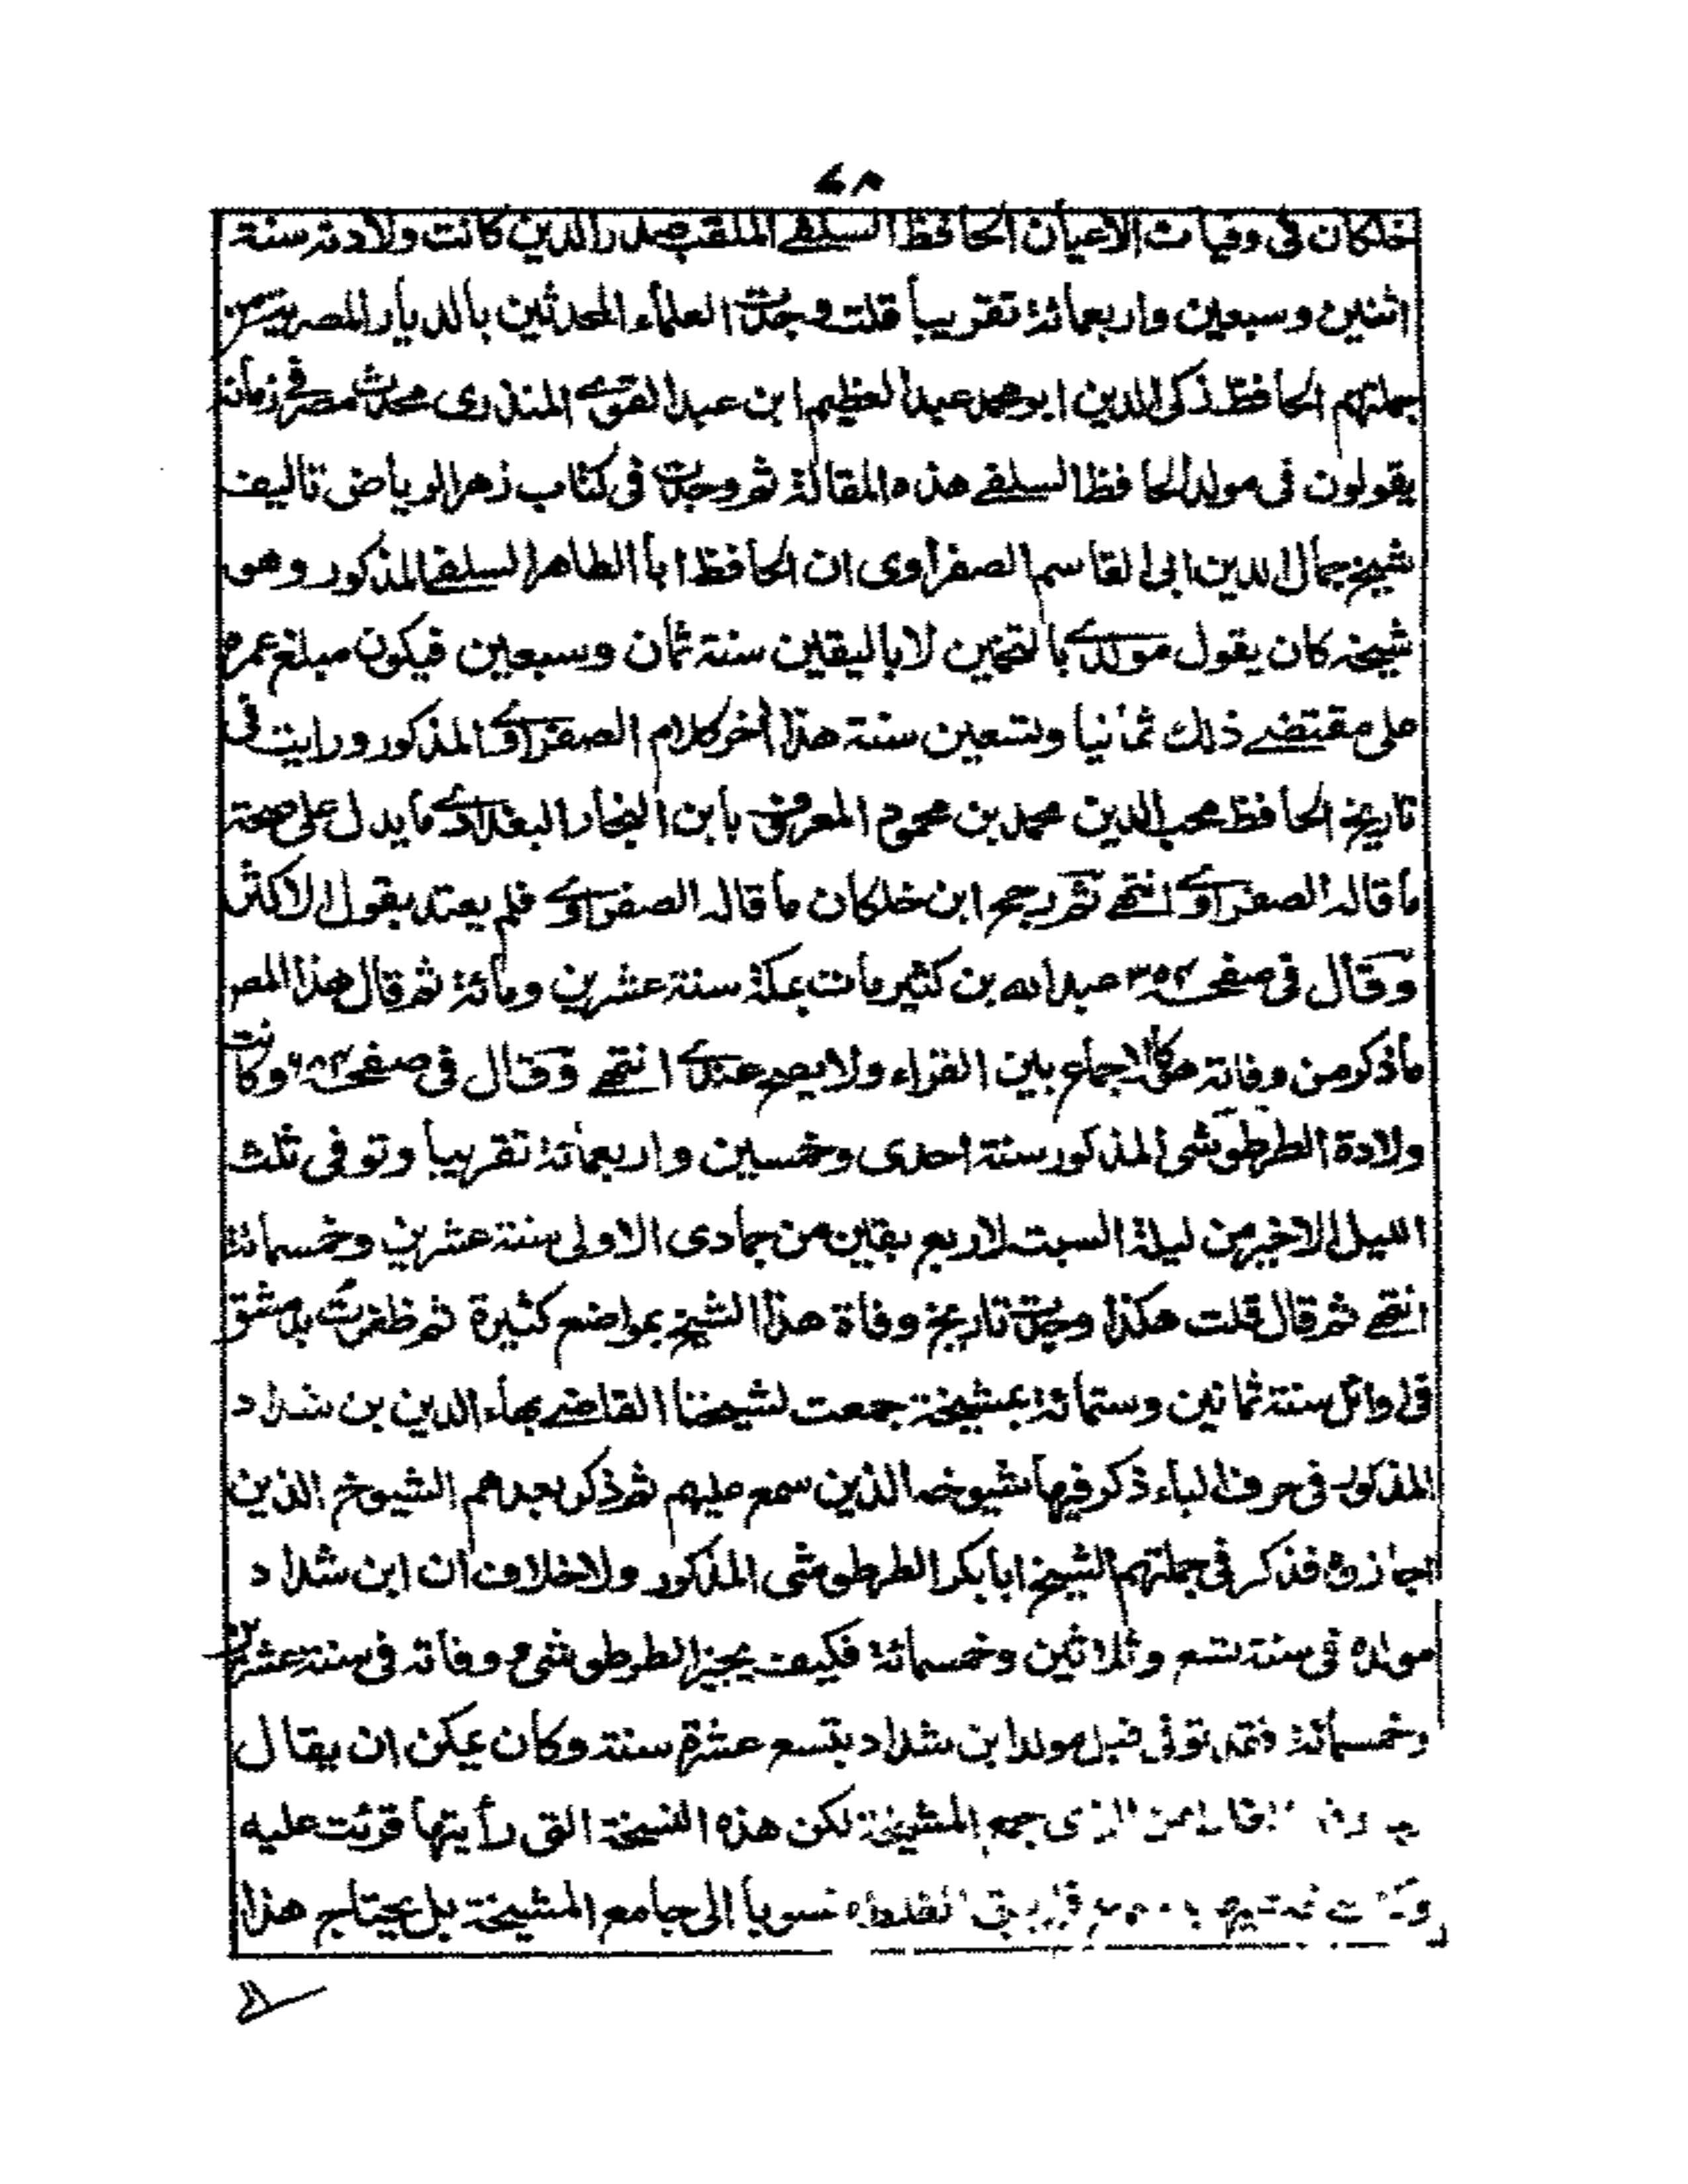 ٤٨
خلكان فى وفيات الاعيان الحافظ السلفے الملقب صدر الدين كانت ولادته سنة
اثنين وسبعين واربعمائة تقريبا قلت وجدت العلماء المحدثين بالديار المصرية من
جملتهم الحافظ زكى الدين ابو محمد عبد العظيم ابن عبد القوى المنذرى محدث مصر فى زمانه
يقولون فى مولد الحافظ السلفے هذه المقالة ثم وجدت فى كتاب زهر الرياض تاليف
شيخ جمال الدين ابى القاسم الصفراوى ان الحافظ ابا الطاهر السلفے المذكور وهو
شيخه كان يقول مولدے بالتخمين لا باليقين سنة ثمان وسبعين فيكون مبلغ عمره
على مقتضے ذلك ثمانيا وتسعين سنة هذا آخر كلام الصفراوے المذكور ورايت فى
تاريخ الحافظ محب الدين محمد بن محمود المعروف بابن النجار البغدادے ما يدل على صحة
ما قاله الصفراوے انتهے ثم رجح ابن خلكان ما قاله الصفراوے فلم يعتد بقول الاكثر
وقال فى صفحه ٣٥٢ عبد الله بن كثير مات بمكة سنة عشرين ومائة ثم قال هذا المصر
ما ذكر من وفاته هو كالاجماع بين القراء ولا يصح عندے انتهے وقال فى صفحه وكانت
ولادة الطرطوشى المذكور سنة احدى وخمسين واربعمائة تقريبا وتوفى ثلث
الليل الاخير من ليلة السبت لاربع بقين من جمادى الاولى سنة عشرين وخمسمائة
انتهے ثم قال قلت هكذا وجدت تاريخ وفاة هذا الشيخ بمواضع كثيرة ثم ظفرت بدمشق
فى اوائل سنة ثمانين وستمائة بمشيخة جمعت لشيخنا القاضے بهاء الدين بن شداد
المذكور فى حرف الباء ذكر فيها شيوخه الذين سمع عليهم ثم ذكر بعدهم الشيوخ الذين
اجازوه فذكر فى جملتهم الشيخ ابا بكر الطرطوشى المذكور ولا خلاف ان ابن شداد
مولده فى سنة تسع وثلاثين وخمسمائة فكيف يجيزه الطرطوشى ووفاته فى سنة عشرين
وخمسمائة فقد توفى قبل مولد ابن شداد بتسع عشرة سنة وكان يمكن ان يقال
من الذى جمع المشيخة لكن هذه النسخة التى رأيتها قرئت عليه
الغلط منسوبا الى جامع المشيخة بل يحتاج هذا